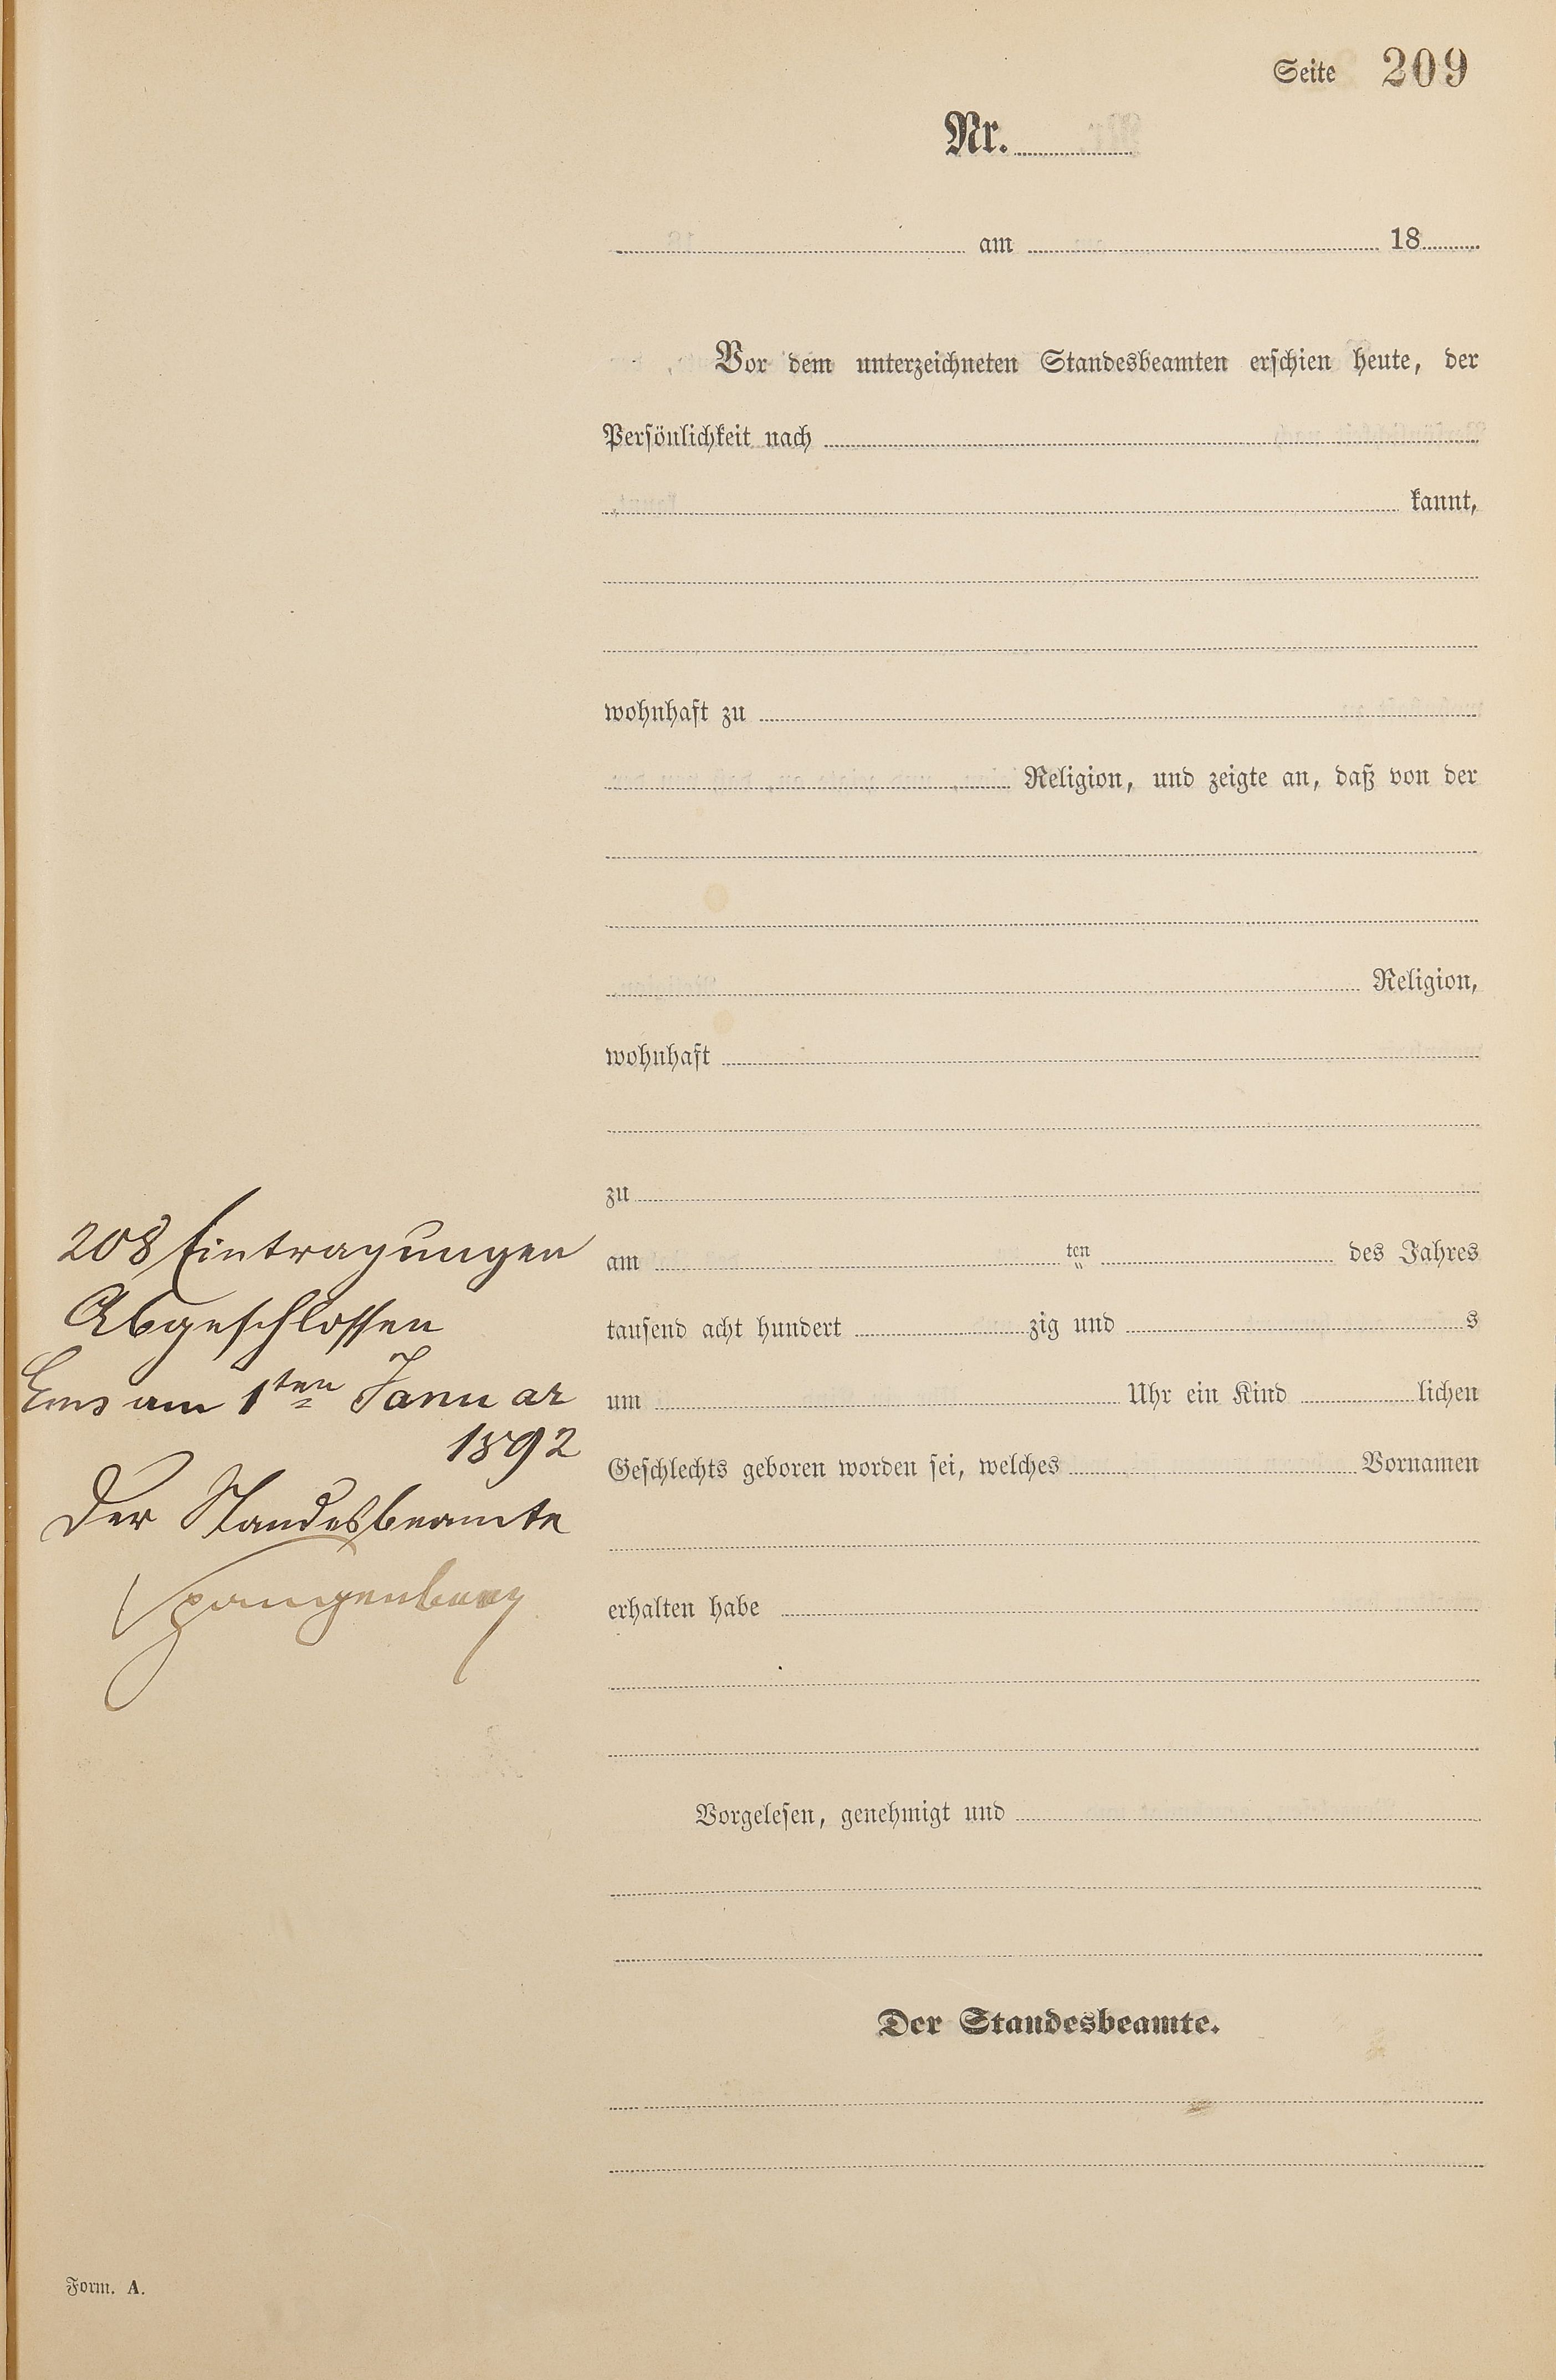 Seite 209
Nr.
am 18
Vor dem unterzeichneten Standesbeamten erschien heute, der
Persönlichkeit nach
kannt,
wohnhaft zu
Religion, und zeigte an, daß von der
Religion,
wohnhaft
zu
am ten des Jahres
tausend acht hundert zig und s
um Uhr ein Kind lichen
Geschlechts geboren worden sei, welches Vornamen
erhalten habe
Vorgelesen, genehmigt und
Der Standesbeamte.
208 Eintragungen
Abgeschlossen
Ems am 1ten Januar
1892
Der Standesbeamte
Spangenberg
Form. A.